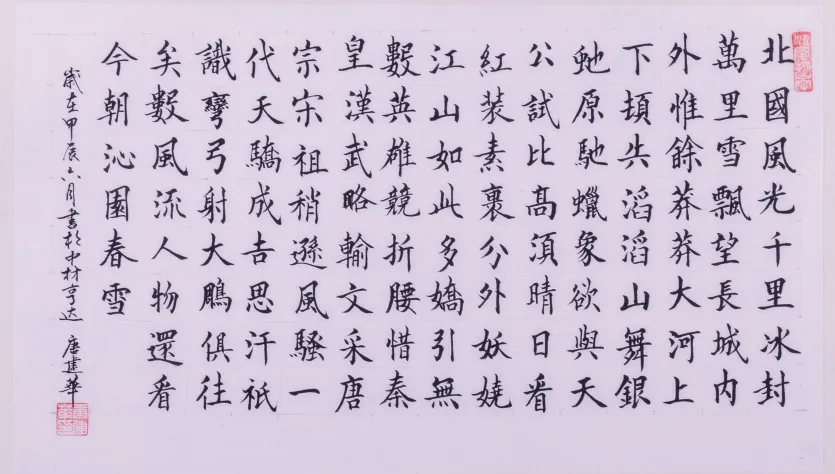 北國風光千里冰封
萬里雪飄望長城内
外惟餘莽莽大河上
下頓失滔滔山舞銀
虵原馳蠟象欲與天
公試比高須晴日看
紅装素裹分外妖嬈
江山如此多嬌引無
數英雄競折腰惜秦
皇漢武略輸文采唐
宗宋祖稍遜風騷一
代天驕成吉思汗祇
識彎弓射大鵰俱往
矣數風流人物還看
今朝沁園春雪
歲在甲辰六月書於中材亨达 唐建華